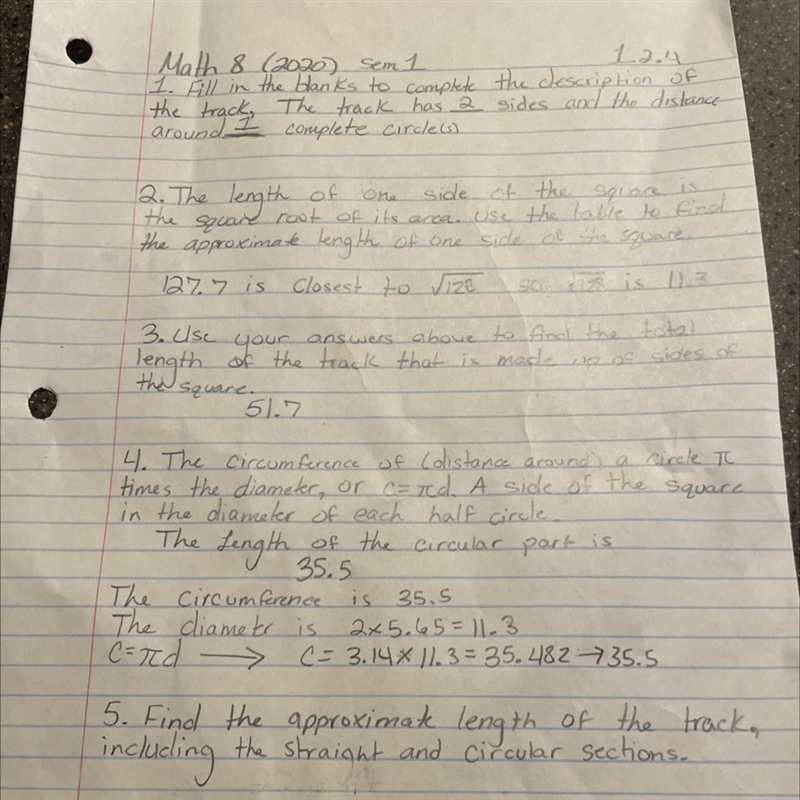 Math 8 (2020) Sem 1 1.2.4
1. Fill in the blanks to complete the description of
the track, The track has 2 sides and the distance
around 1 complete circle(s)
2. The length of one side of the square is
the square root of its area. Use the table to find
the approximate length of one side of the square.
127.7 is closest to √128 so √128 is 11.3
3. Use your answers above to find the total
length of the track that is made up of sides of
the square.
51.7
4. The circumference of (distance around) a circle π
times the diameter, or c=πd. A side of the square
in the diameter of each half circle.
The Length of the circular part is
35.5
The circumference is 35.5
The diametr is 2x5.65=11.3
C=πd → C= 3.14x11.3=35.482→35.5
5. Find the approximate length of the track,
including the straight and circular sections.